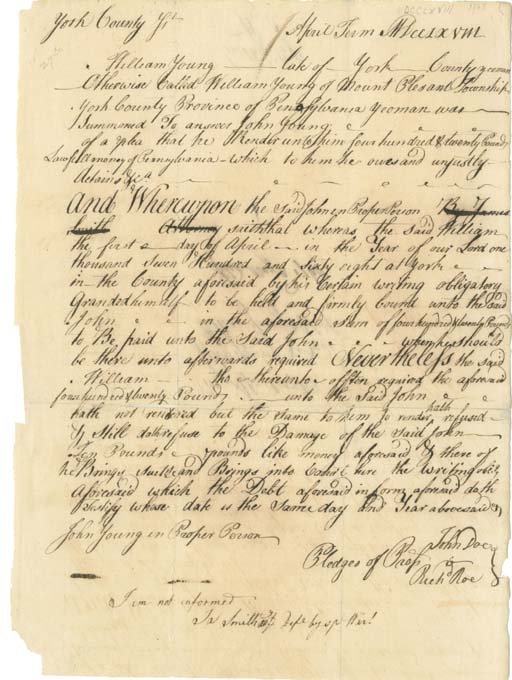 DCCLXVIII
York County Ss.
April Term MDCCLXVIII
William Young late of York County yeoman
Otherwise Called William Young of Mount Plesant Township
York County Province of Pensylvania Yeoman was
Summoned To answer John Young
of a plea that he Render unto him four hundred & twenty Pounds
Lawful money of Pennsylvania which to him he owes and unjustly
detains &ca
And Whereupon the said John in Proper Person By James
Smith Attorney saith that whereas the said William
the first day of April in the Year of our Lord one
thousand Seven Hundred and sixty eight at York
in the County aforesaid by his Certain writing obligatory
Granted himself to be held and firmly bound unto the said
John in the aforesaid Sum of four hundred & twenty Pounds
to Be paid unto the said John when he should
be there unto afterwards required Nevertheless the said
William tho thereunto often required the aforesaid
four hundred & twenty Pounds unto the said John
hath not rendred but the same to him to render hath refused
& Still doth refuse to the Damage of the said John
Ten Pounds pounds like money aforesaid & there of
he Brings suit and Brings into Court here the writing
Aforesaid which the Debt aforesaid in form aforesaid doth
Testify whose date is the Same day and Year abovesaid &c
John Young in Proper Person
Pledges of Pros John Doe
& Richd Roe
I am not informed
Ja Smith Deft by